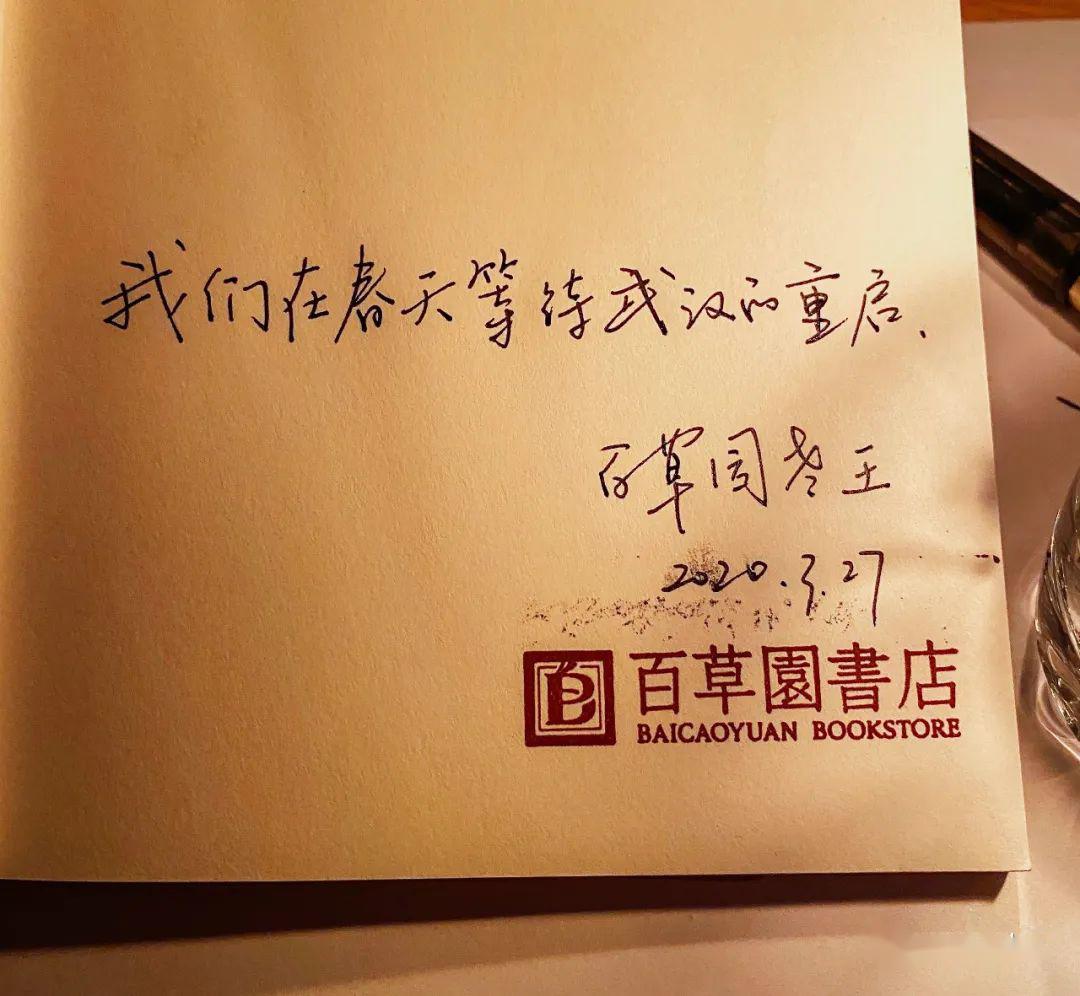 我们在春天等待武汉的重启.
百草园老王
2020.3.27
百草園書店
BAICAOYUAN BOOKSTORE